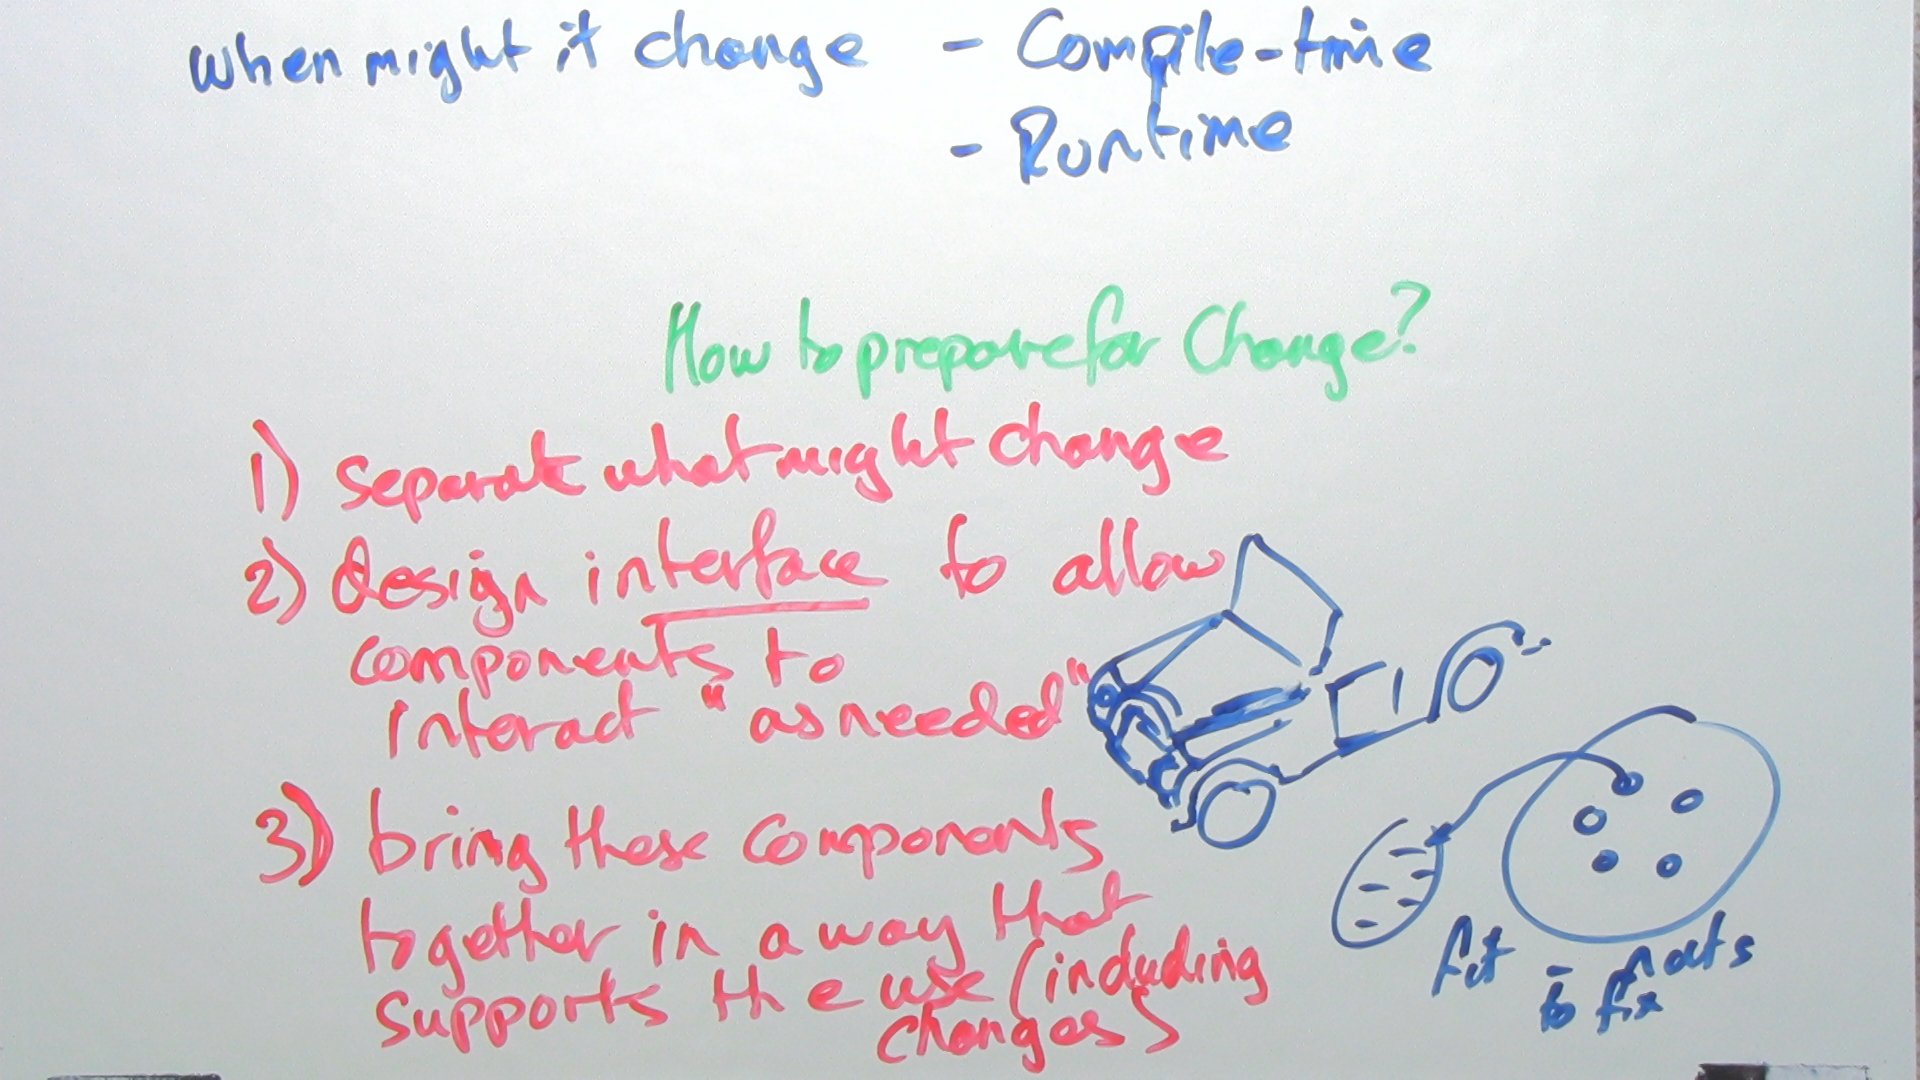 when might it change - Compile-time
- Runtime
How to prepare for Change?
1) separate what might change
2) design interface to allow
components to
interact "as needed"
3) bring these components
together in a way that
supports the use (including
changes)
fit - nuts
to fix